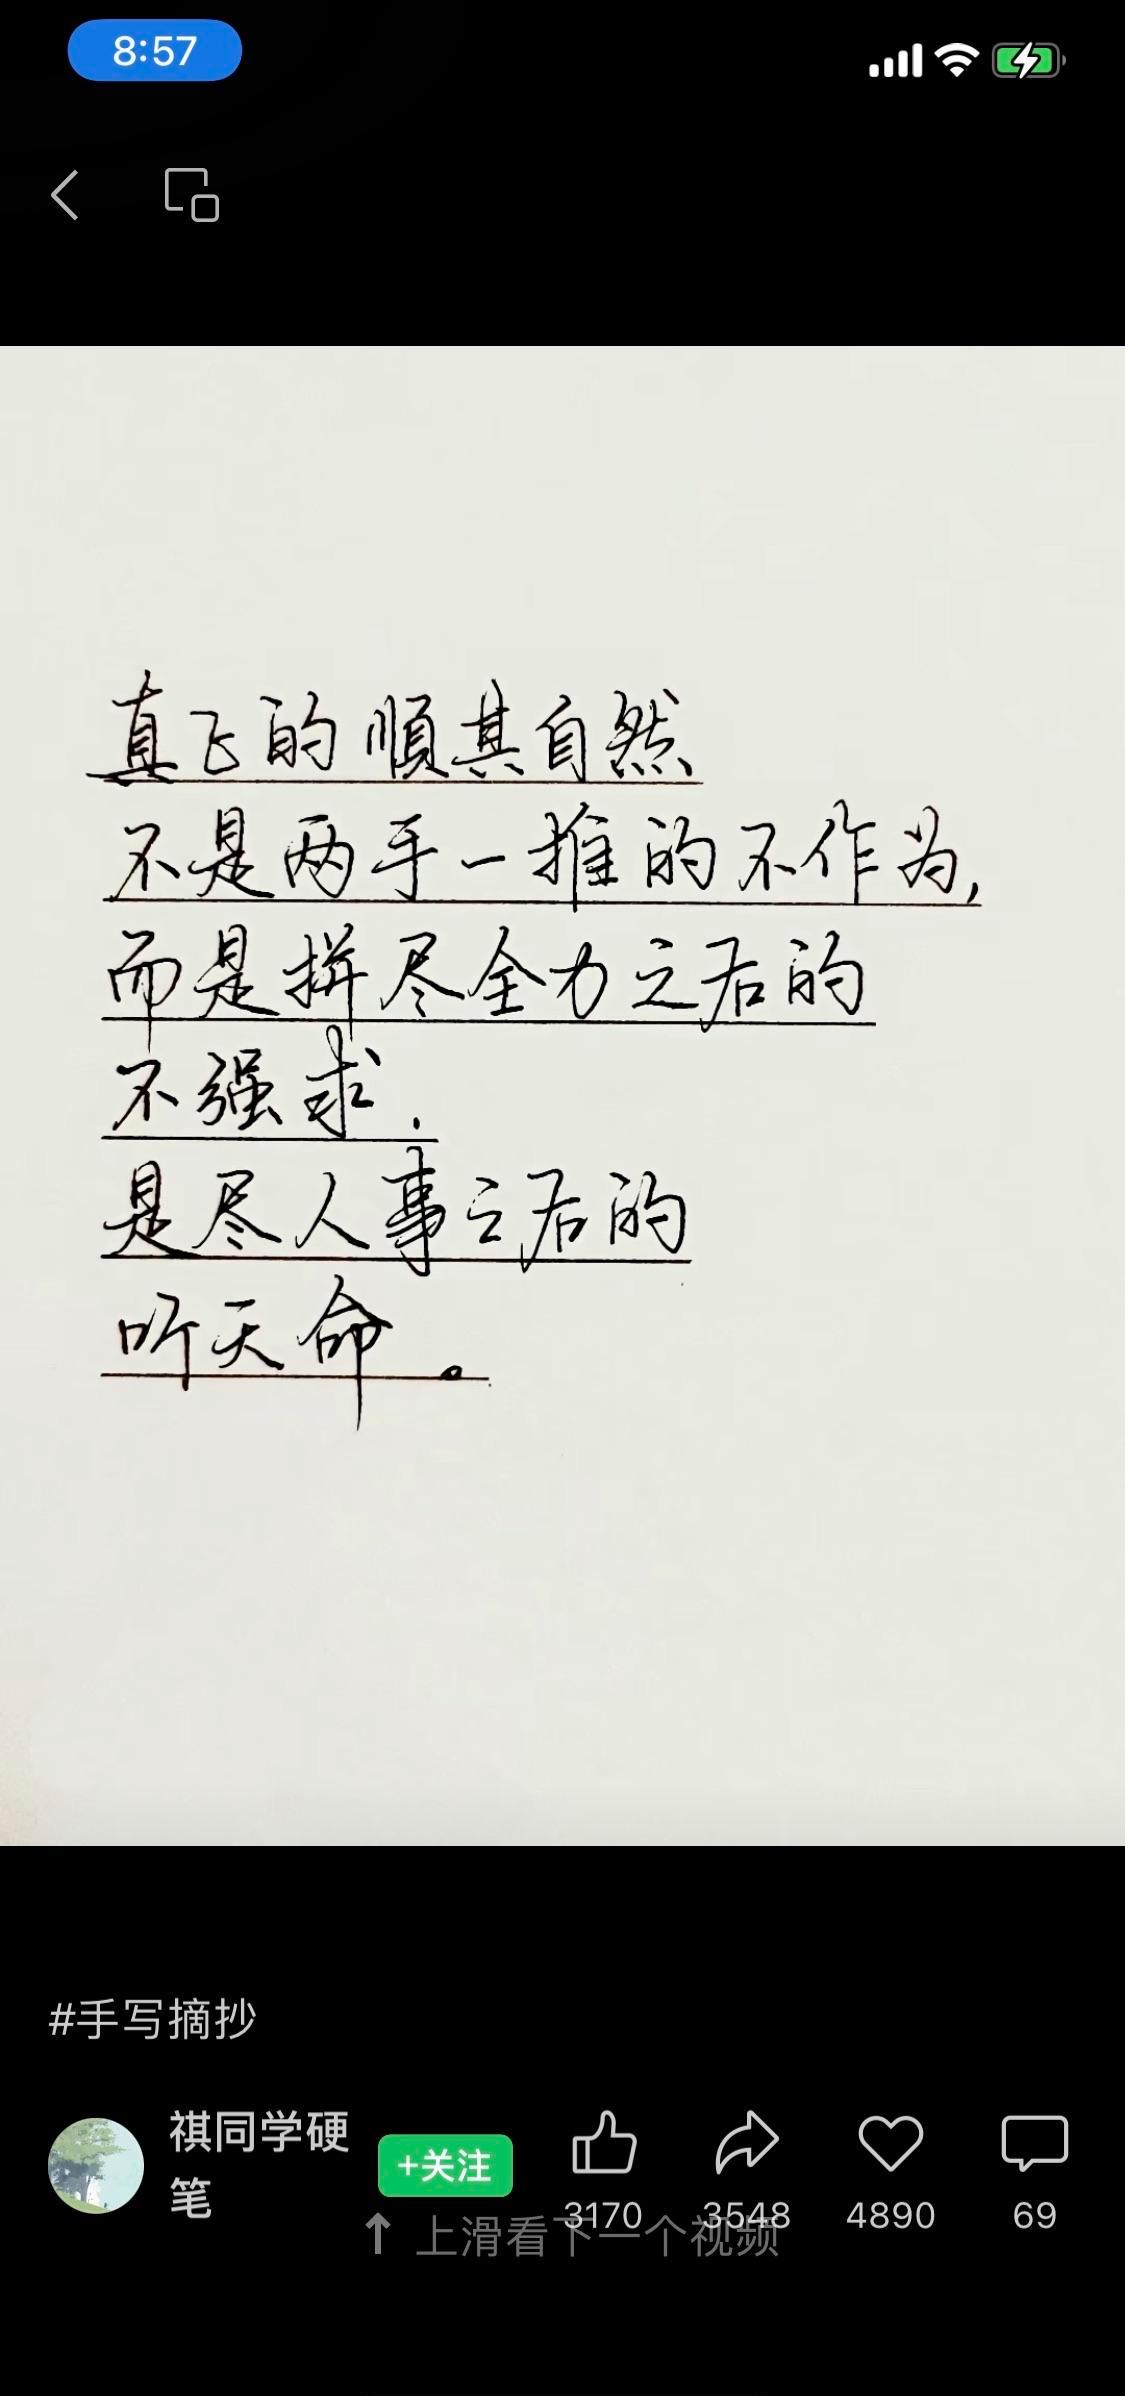 8:57
真正的順其自然
不是两手一推的不作为,
而是拼尽全力之后的
不强求.
是尽人事之后的
听天命。
#手写摘抄
祺同学硬
笔
+关注
3170
3548
4890
69
↑ 上滑看下一个视频